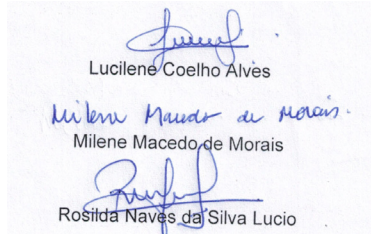 Lucilene Coelho Alves
Milene Macedo de Morais.
Milene Macedo de Morais
Rosilda Naves da Silva Lucio